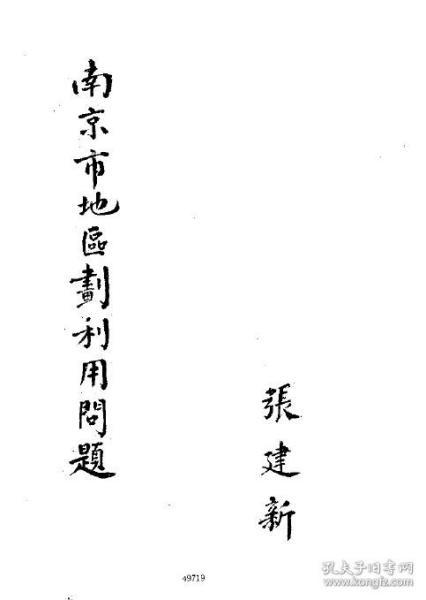 南京市地區劃利用問題
張建新
49719
孔夫子旧书网
www.kongfz.com